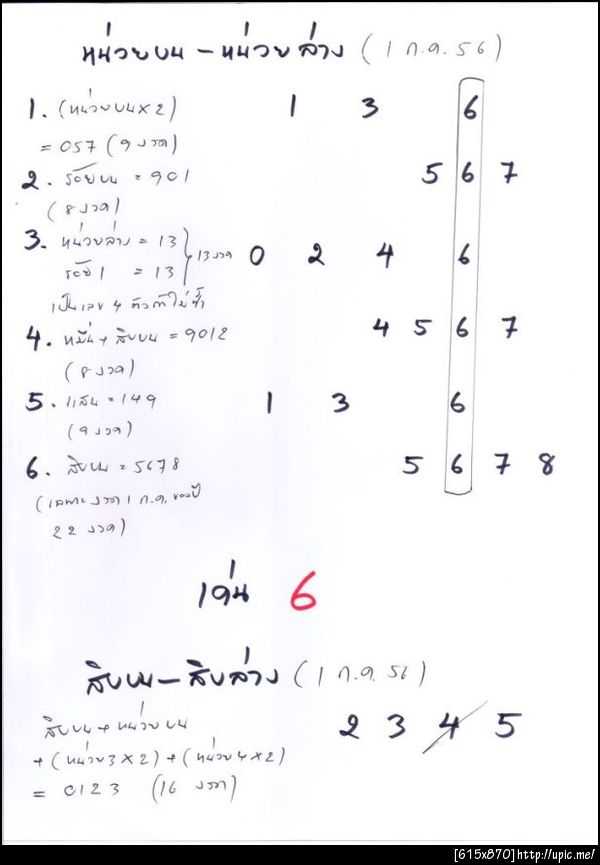 หน่วยบน - หน่วยล่าง (1 ก.ค. 56)
1. (หน่วยบน x 2) 1 3 6
= 057 (9 งวด)
2. ร้อยบน = 901 5 6 7
(8 งวด)
3. หน่วยล่าง = 13 13 งวด 0 2 4 6
ร้อย 1 = 13
เป็นเลข 4 ตัวที่ไม่ซ้ำ
4. หมื่น + สิบบน = 9012 4 5 6 7
(8 งวด)
5. แสน = 149 1 3 6
(9 งวด)
6. สิบบน = 5678 5 6 7 8
(เฉพาะงวด 1 ก.ค. ของปี
22 งวด)
เด่น 6
สิบบน - สิบล่าง (1 ก.ค. 56)
สิบบน + หน่วยบน 2 3 4 5
+ (หน่วย 3 x 2) + (หน่วย 4 x 2)
= 0123 (16 งวด)
[615x870]http://upic.me/